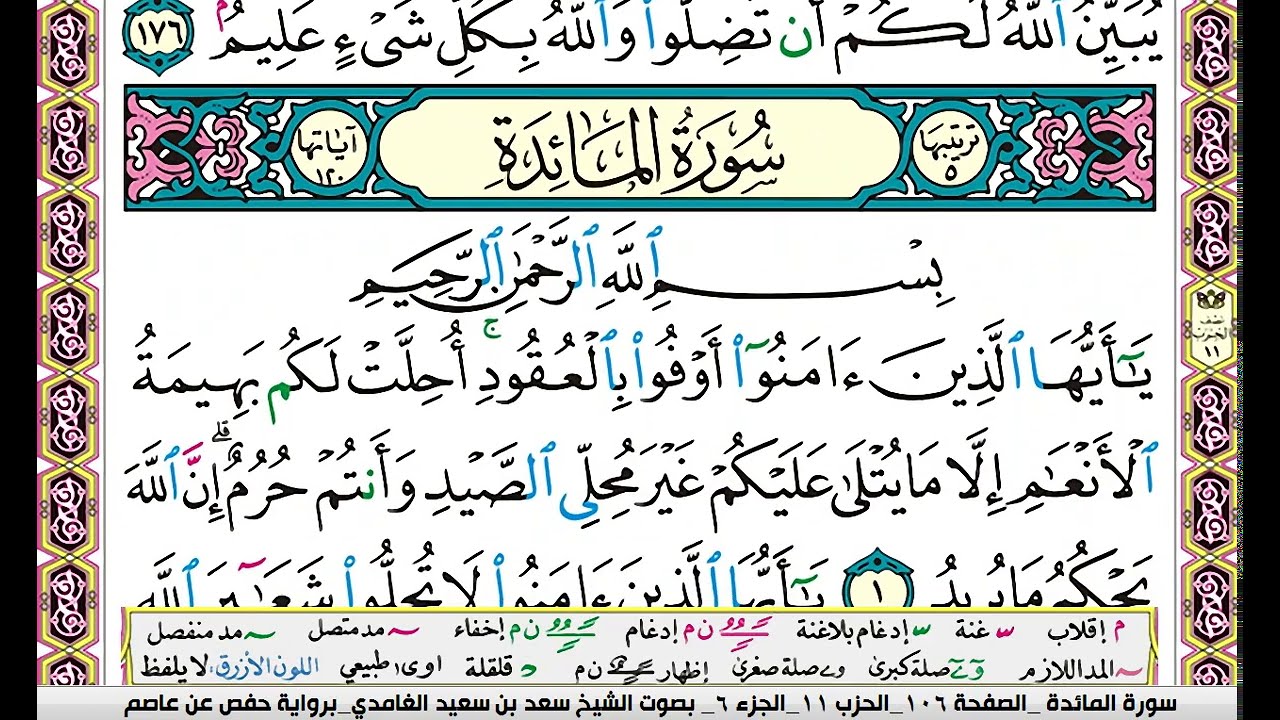 يُبَيِّنُ ٱللَّهُ لَكُمْ أَن تَضِلُّوا۟ وَٱللَّهُ بِكُلِّ شَىْءٍ عَلِيمٌۢ ١٧٦
ترتيبها ٥ سُورَةُ المَائِدَةِ آياتها ١٢٠
بِسْمِ ٱللَّهِ ٱلرَّحْمَٰنِ ٱلرَّحِيمِ
يَٰٓأَيُّهَا ٱلَّذِينَ ءَامَنُوٓا۟ أَوْفُوا۟ بِٱلْعُقُودِ ۚ أُحِلَّتْ لَكُم بَهِيمَةُ
ٱلْأَنْعَٰمِ إِلَّا مَا يُتْلَىٰ عَلَيْكُمْ غَيْرَ مُحِلِّى ٱلصَّيْدِ وَأَنتُمْ حُرُمٌ ۗ إِنَّ ٱللَّهَ
نصف الحزب ١١
يَحْكُمُ مَا يُرِيدُ ١ يَٰٓأَيُّهَا ٱلَّذِينَ ءَامَنُوا۟ لَا تُحِلُّوا۟ شَعَٰٓئِرَ ٱللَّهِ
م إقلاب ـس غنة ـس إدغام بلاغنة ن م إدغام ن م إخفاء ~ مد متصل ~ مد منفصل
~ المد اللازم و ے صلة كبرى و ے صلة صغرى إظهار ن م د قلقلة ا و ى طبيعي اللون الأزرق: لا يلفظ
سورة المائدة _الصفحة ١٠٦_الحزب ١١_الجزء ٦_ بصوت الشيخ سعد بن سعيد الغامدي_برواية حفص عن عاصم